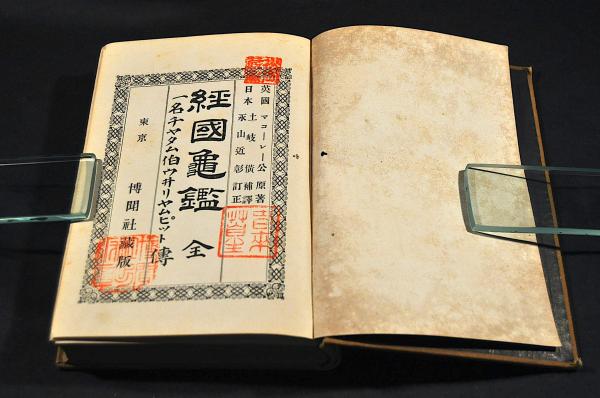 英國 マコーレー公 原著
日本 土岐 僙 補譯
永山近彰 訂正
經國龜鑑 全
一名チヤタム伯ウ井リヤムピツト傳
東京 博聞社藏版